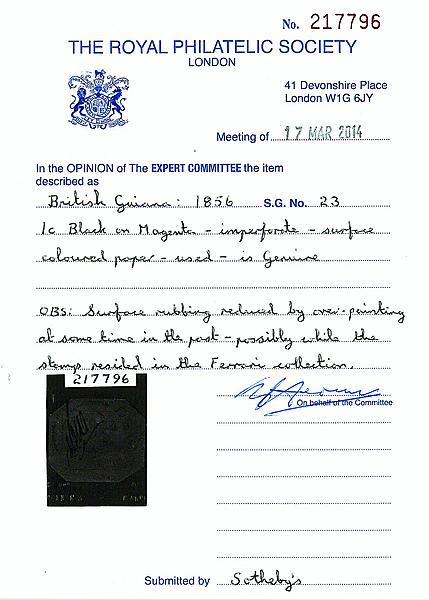 No. 217796
THE ROYAL PHILATELIC SOCIETY
LONDON
41 Devonshire Place
London W1G 6JY
Meeting of 17 MAR 2014
In the OPINION of The EXPERT COMMITTEE the item
described as
British Guiana: 1856 S.G. No. 23
1c Black on Magenta - imperforate - surface
coloured paper - used - is Genuine
OBS: Surface rubbing reduced by over-painting
at some time in the past - possibly while the
stamp resided in the Ferrari collection.
217796
On behalf of the Committee
Submitted by Sotheby's